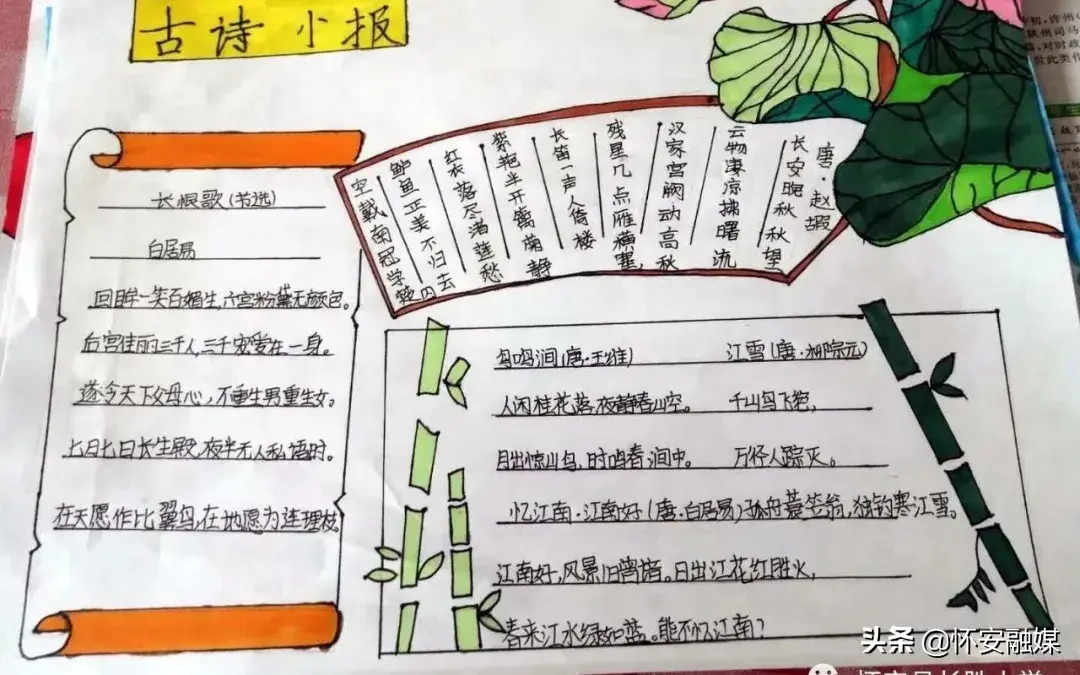 古诗小报
长恨歌(节选)
白居易
回眸一笑百媚生,六宫粉黛无颜色。
后宫佳丽三千人,三千宠爱在一身。
遂令天下父母心,不重生男重生女。
七日七日长生殿,夜半无人私语时。
在天愿作比翼鸟,在地愿为连理枝。
唐·赵嘏
长安晚秋秋望
云物凄凉拂曙流
汉家宫阙动高秋
残星几点雁横塞,
长笛一声人倚楼
紫艳半开篱菊静
红衣落尽渚莲愁
鲈鱼正美不归去
空戴南冠学楚囚
鸟鸣涧(唐·王维)
江雪(唐·柳宗元)
人闲桂花落,夜静春山空。
千山鸟飞绝,
月出惊山鸟,时鸣春涧中。
万径人踪灭。
忆江南·江南好(唐·白居易)孤舟蓑笠翁,独钓寒江雪。
江南好,风景旧曾谙。日出江花红胜火,
春来江水绿如蓝。能不忆江南?
头条 @怀安融媒